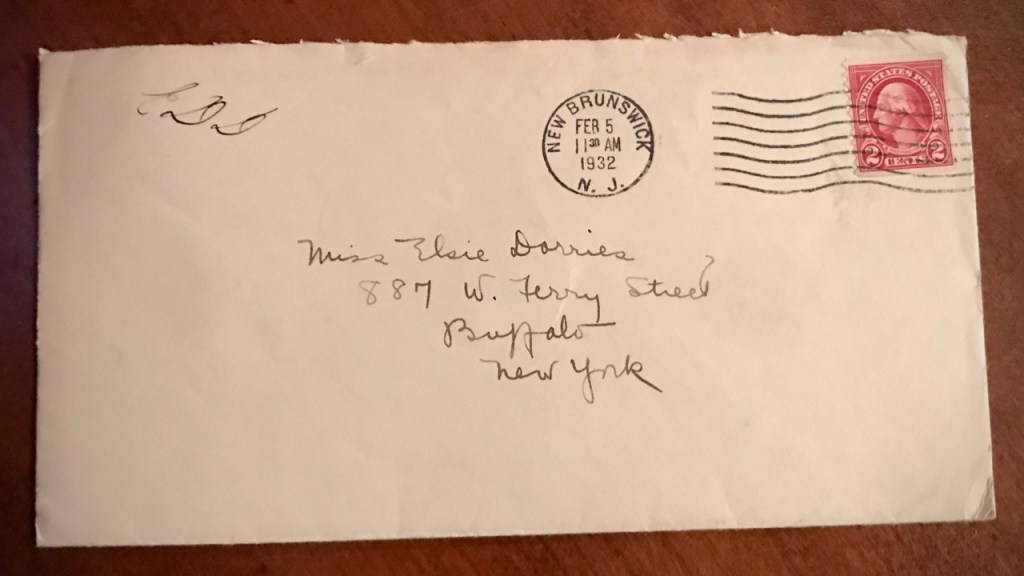 EDD
NEW BRUNSWICK
FEB 5
11 30 AM
1932
N. J.
UNITED STATES POSTAGE
2 CENTS 2
Miss Elsie Dorries
887 W. Ferry Street
Buffalo
New York